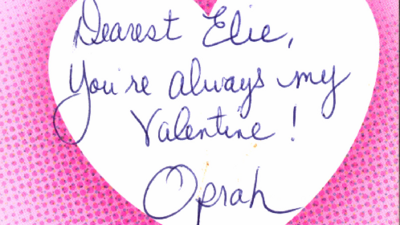 Dearest Elie,
You're always my
Valentine!
Oprah